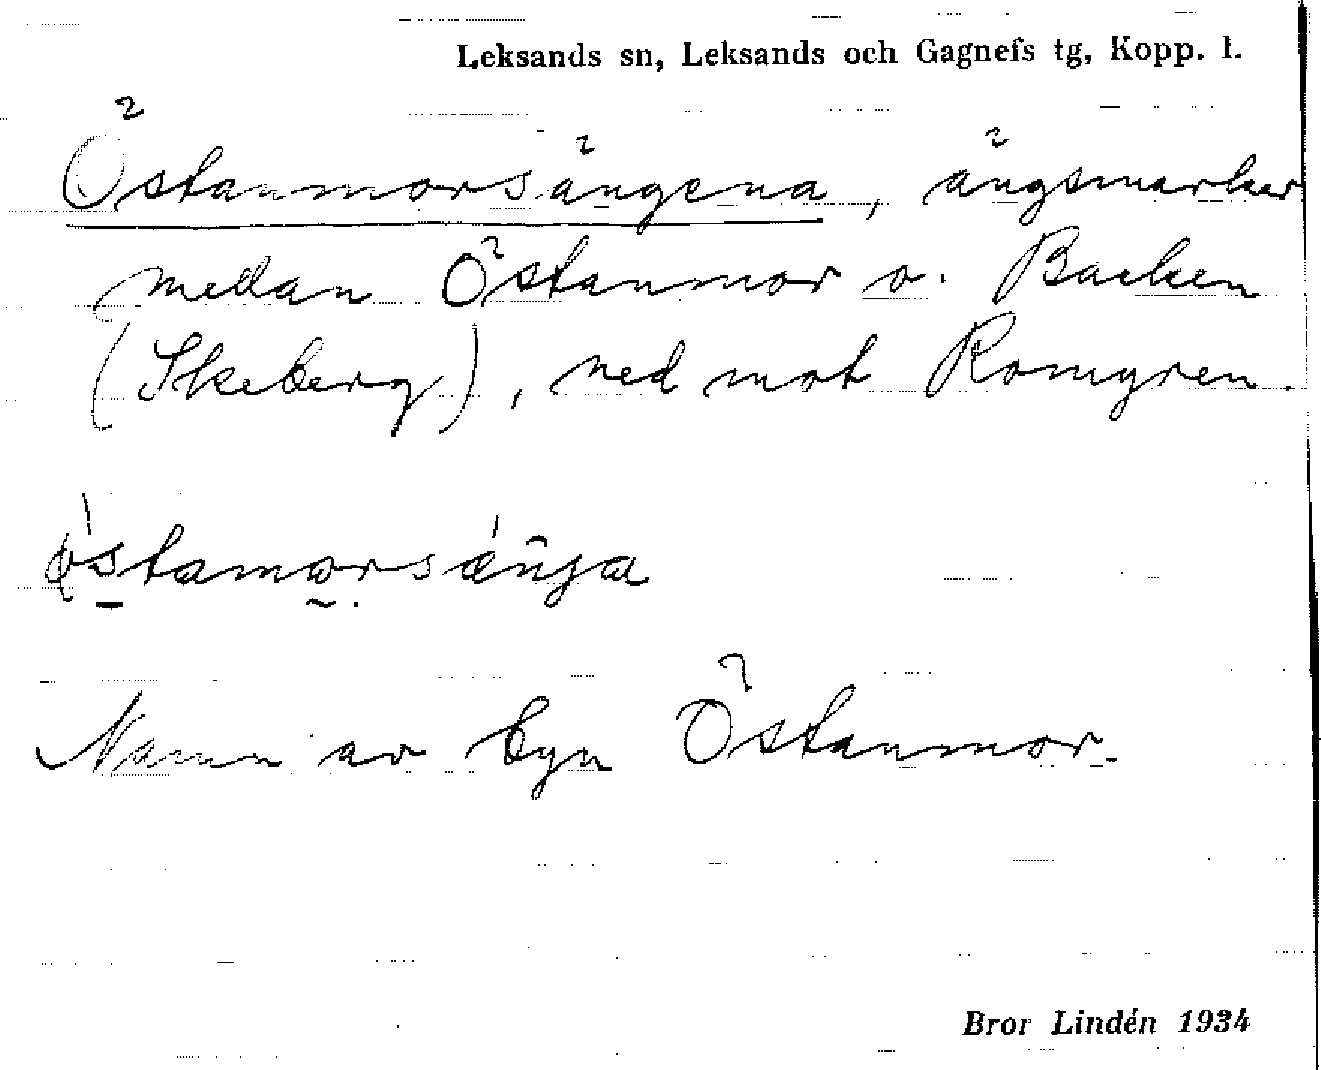 Leksands sn, Leksands och Gagnefs tg, Kopp. l.
Östanmorsängena, ängsmarker
mellan Östanmor o. Backen
(Skeberg), ned mot Romyren.
östamorsäŋja
Namn av byn Östanmor.
Bror Lindén 1934